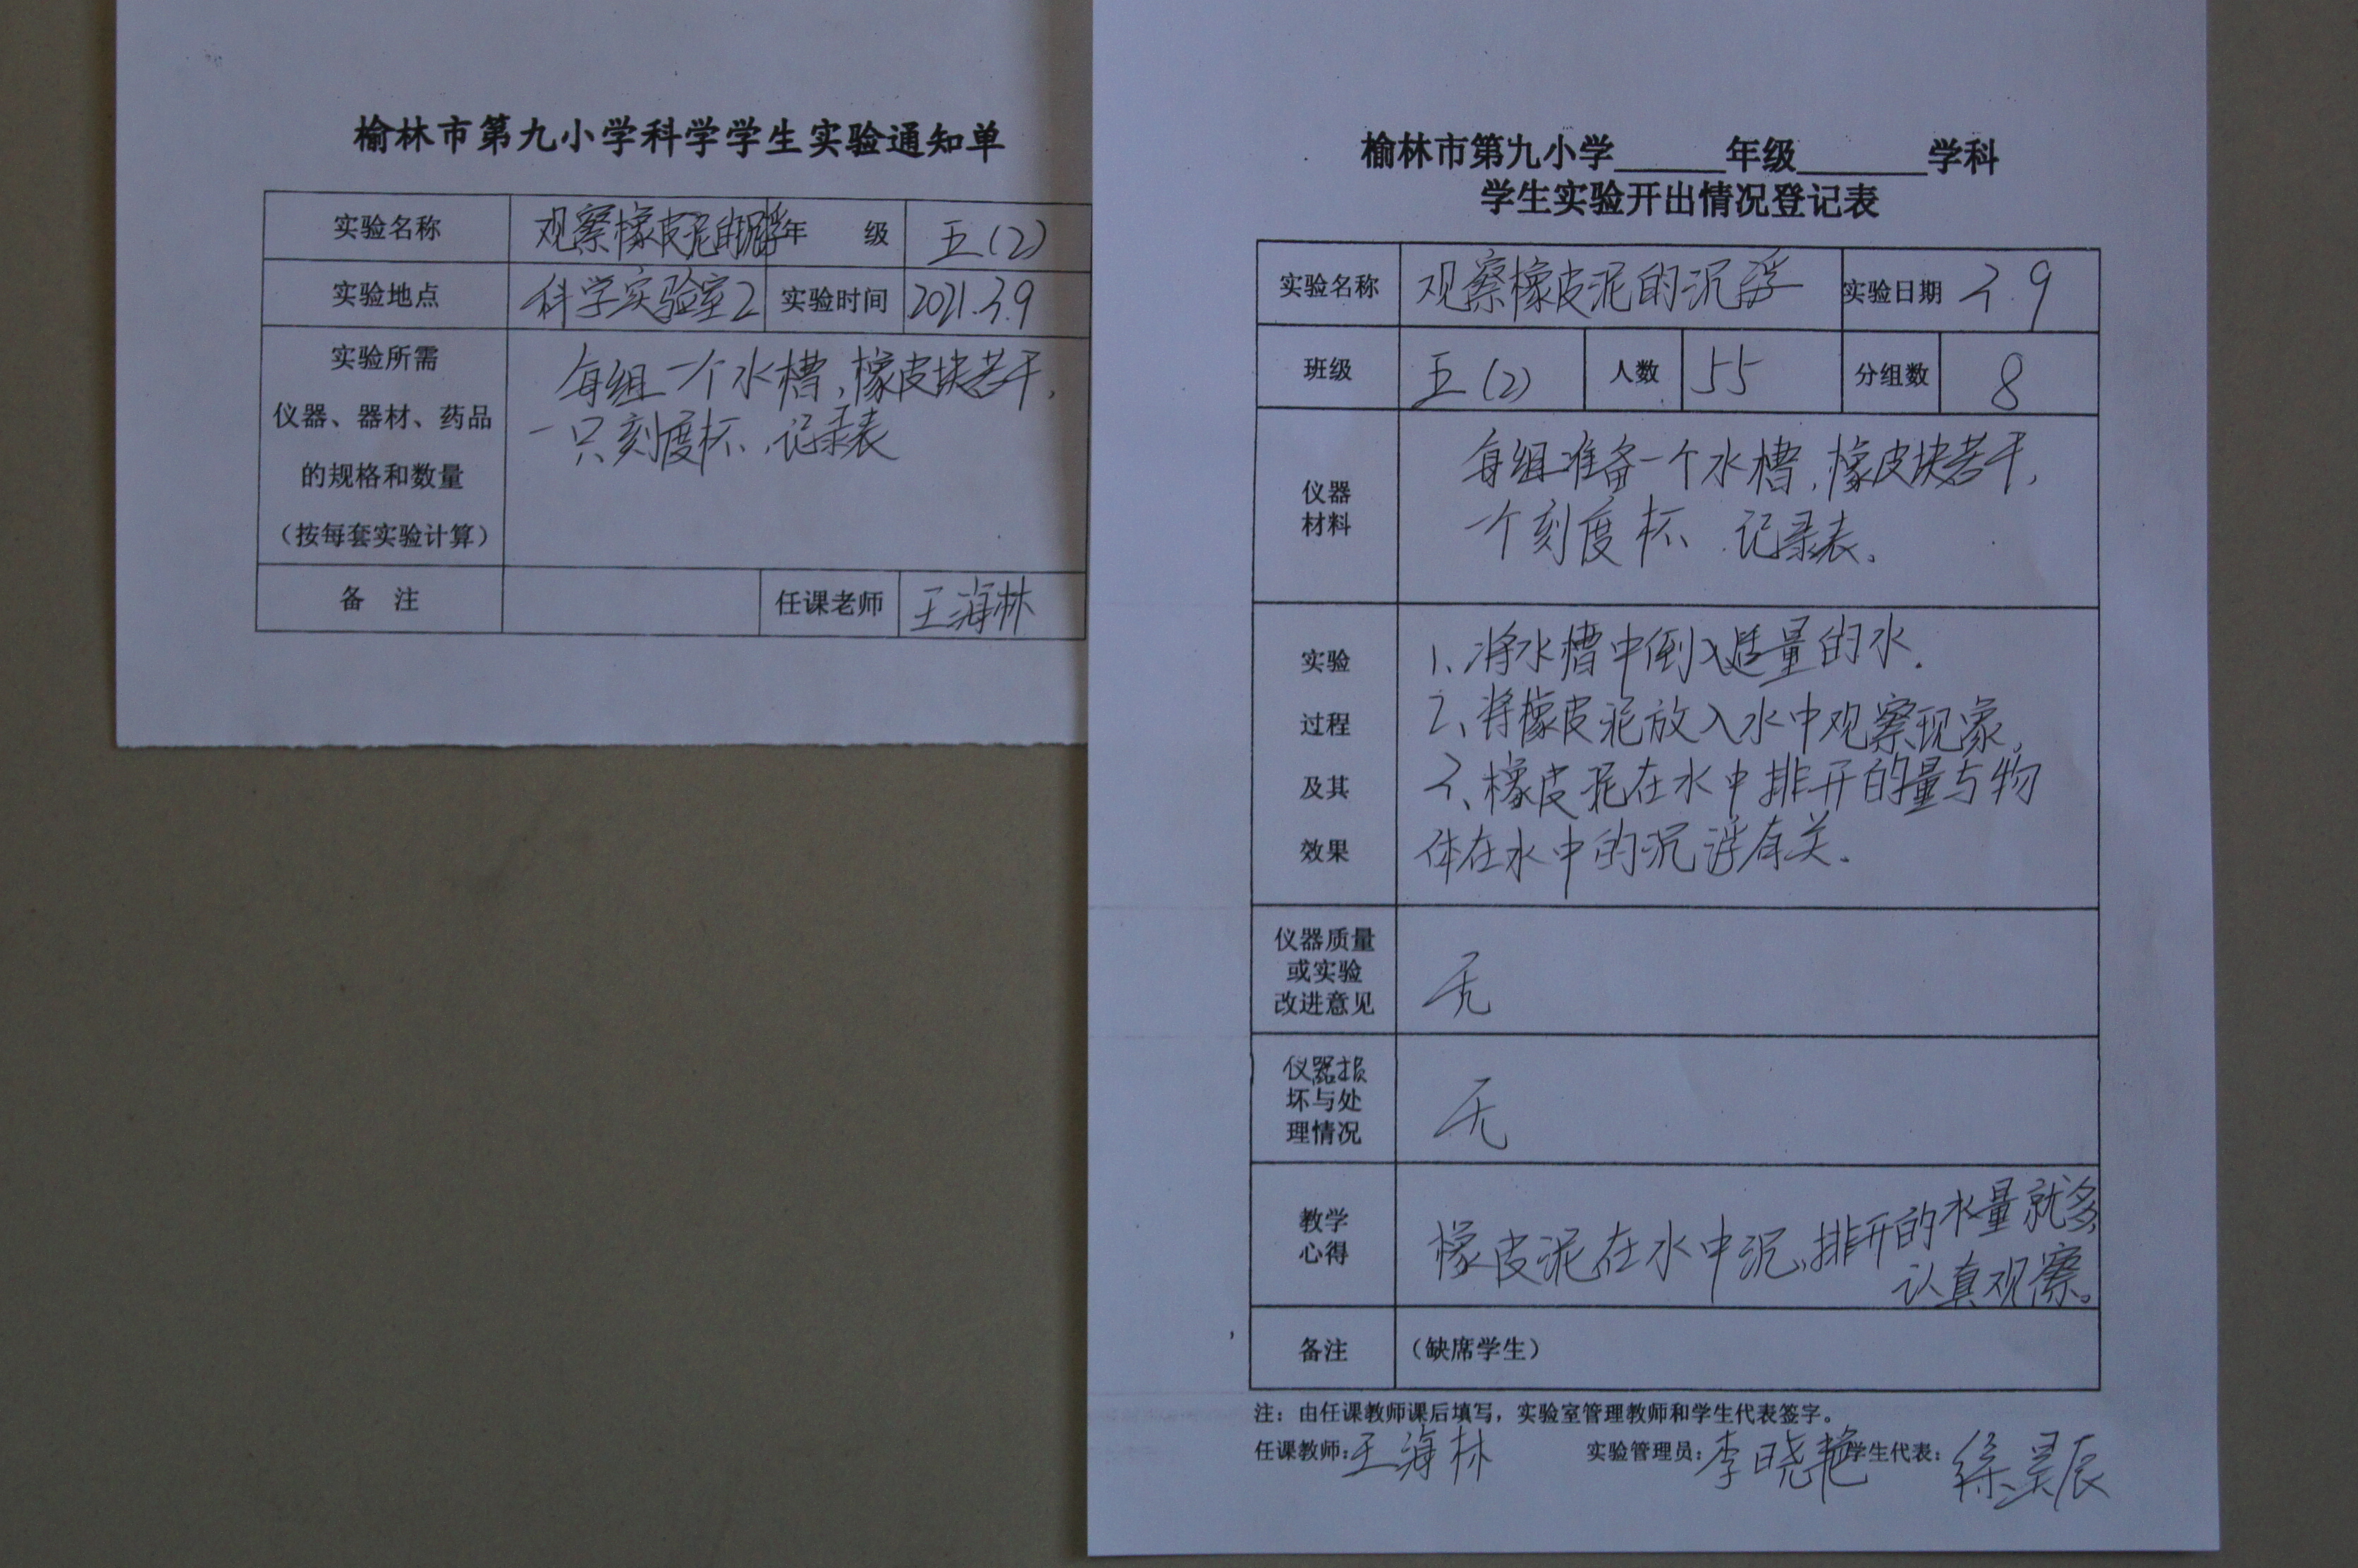 榆林市第九小学科学学生实验通知单
实验名称 观察橡皮泥的沉浮 年 级 五(2)
实验地点 科学实验室2 实验时间 2021.3.9
实验所需
仪器、器材、药品
的规格和数量
(按每套实验计算)
每组一个水槽,橡皮块若干,
一只刻度杯、记录表
备 注 任课老师 王海林
榆林市第九小学______年级_______学科
学生实验开出情况登记表
实验名称 观察橡皮泥的沉浮 实验日期 3.9
班级 五(2) 人数 55 分组数 8
仪器
材料
每组准备一个水槽,橡皮块若干,
一个刻度杯、记录表。
实验
过程
及其
效果
1、将水槽中倒入适量的水.
2、将橡皮泥放入水中观察现象。
3、橡皮泥在水中排开的量与物
体在水中的沉浮有关.
仪器质量
或实验
改进意见
无
仪器损
坏与处
理情况
无
教学
心得
橡皮泥在水中沉,排开的水量就多,
认真观察。
备注 (缺席学生)
注:由任课教师课后填写,实验室管理教师和学生代表签字。
任课教师:王海林 实验管理员:李晓艳 学生代表:徐昊辰